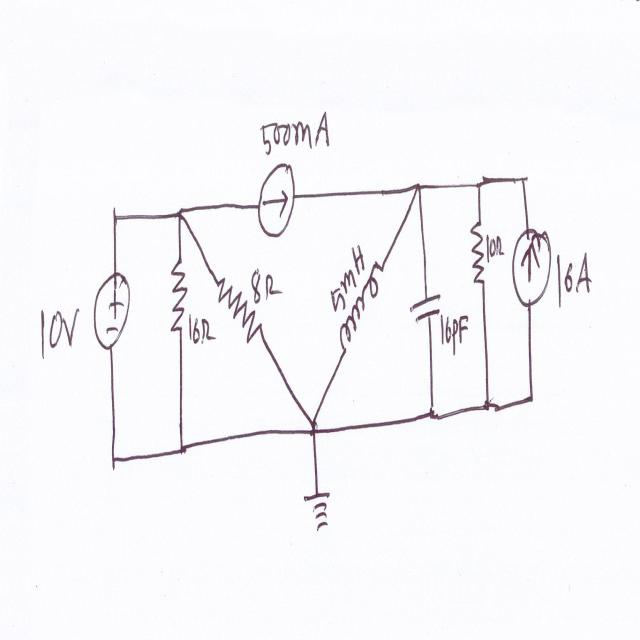 500mA
10V
+
-
16Ω
8Ω
5mH
16pF
10Ω
16A